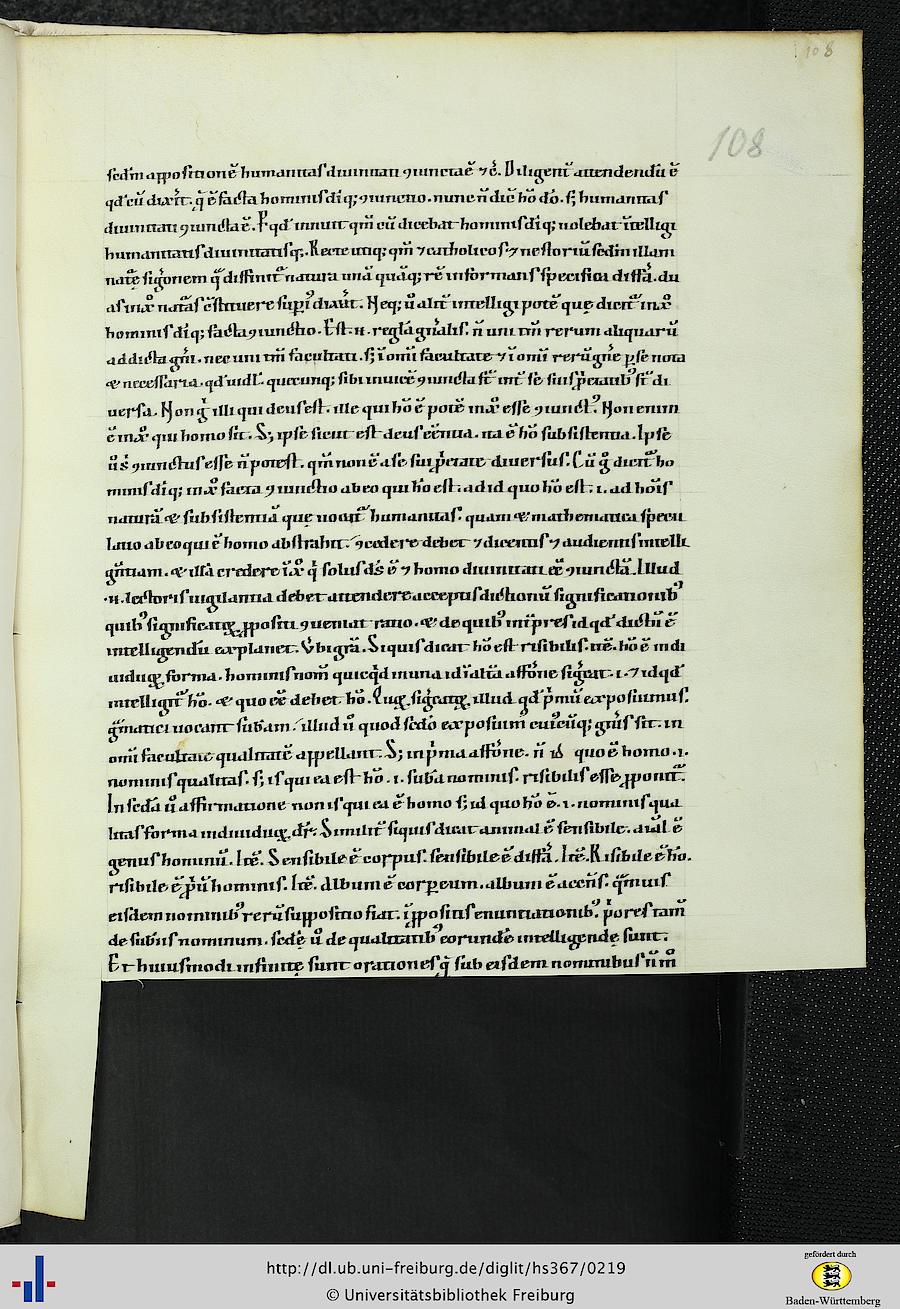 108
108
sedm appositionē humanitas diuinitati ꝯiunctaē ⁊c̄. Diligent̄ attendendū ē
qd cū dixit. q̄ ē facta hominis di q; ꝯiunctio. nunc n̄ dic̄ hō dō. s; humanitas
diuinitati ꝯiuncta ē. P qd innuit qm̄ cū dicebat hominis di q; nolebat ītelligi
humanitatis diuinitatisq;. Recte utiq; qm̄ ⁊ catholicos ⁊ nestoriū sedm illam
hominis di q; facta ꝯiunctio. Est .n. regla gn̄alis. n̄ uni tm̄ rerum aliquarū
addicta gn̄i. nec uni tm̄ facultati. s; ī omī facultate ⁊ ī omī rerū gn̄e per se nota
uersa. Non g̊ illi qui deus est. ille qui hō ē potē inxo esse ꝯiunct᷒. Non enim
ē inxo qui homo sit. S; ipse sicut est deus eēntia. ita ē hō subsistentia. Ipse
ūs ꝯiunctus esse n̄ potest. qm̄ non ē a se sui ꝓprietate diuersus. Cū g̊ dicit᷑ ho
minis di q; inxo facta ꝯiunctio ab eo qui hō est. ad id quo hō est. .i. ad hoīs
naturā & subsistentiā que uocat᷑ humanitas. quam & mathematica specu
latio ab eo qui ē homo abstrahit. ꝯcedere debet ⁊ dicentis ⁊ audientis intelli
gn̄tiam. & illā credere ī xo q̄ solus ds̄ ē ⁊ homo diuinitati eē ꝯiunctā. Illud
.n. lectoris uigilantia debet attendere acceptis dictionū significationib᷒
quib᷒ significatiꝝ ꝓpositi ꝯueniat ratio. & de quib᷒ int̄pres id qd dictū ē
intelligendū explanet. Vbi grā. Si quis dicat hō est risibilis. itē. hō ē indi
uiduꝝ forma. hominis nom̄ quicq̄d in una id ī alta affōne sig̊cat .i. ⁊ id qd
intelligit᷑ hō. & quo eē debet hō. Quꝝ sig̊catꝝ illud qd p̄mū exposuimus.
g̊matici uocant subam. illud ū quod scdo exposuim᷒ cui᷒cūq; gn̄is sit. in
omī facultate qualitatē appellant. S; in p̄ma affōne. n̄ id quo ē homo .i.
nominis qualitas. s; is qui ea est hō .i. suba nominis. risibilis esse ꝓponit᷑.
In scda ū affirmatione non is qui ea ē homo s; id quo hō ē .i. nominis qua
litas forma indiuiduꝝ dr̄. Similit᷑ si quis dicat animal ē sensibile. aīal ē
genus hominū. Itē. Sensibile ē corpus. sensibile ē diffā. Itē. Risibile ē hō.
risibile ē ꝓpriū hominis. Itē. Album ē corporeum. album ē accn̄s. q̄muis
eisdem nominib᷒ rerū suppositio fiat. ī ꝓpositis enuntiationib᷒. p̄ores tam̄
de subīs nominum. scdę ū de qualitatib᷒ eorundē intelligendę sunt.
Et huiusmodi infinitę sunt orationes q̄ sub eisdem nominibus n̄ m̄
http://dl.ub.uni-freiburg.de/diglit/hs367/0219
© Universitätsbibliothek Freiburg
gefördert durch
Baden-Württemberg